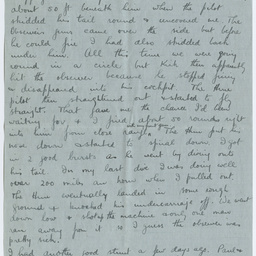 about 20 ft beneath him when the pilot
skidded his tail round & uncovered me. The
Observers guns came over the side but before
he could fire I had also skidded back
under him. All this time we were going
round in a circle but Kirk then apparently
hit the observer because he stopped firing
& disappeared into his cockpit. The Hun
pilot then straightened out & started to
straight. That gave me the chance I'd been
waiting for & I fired about 80 rounds right
into him from close range. The Hun put his
nose down & started to spiral down. I got
in 2 good bursts as he went by diving onto
his tail. In my last dive I was doing well
over 200 miles an hour when I pulled out.
The Hun eventually landed in some rough
ground & knocked his undercarriage off. We went
down low & shot up the machine again one man
ran away from it so I guess the observer was
pretty sick.
I had another good stunt a few days ago. Paul &